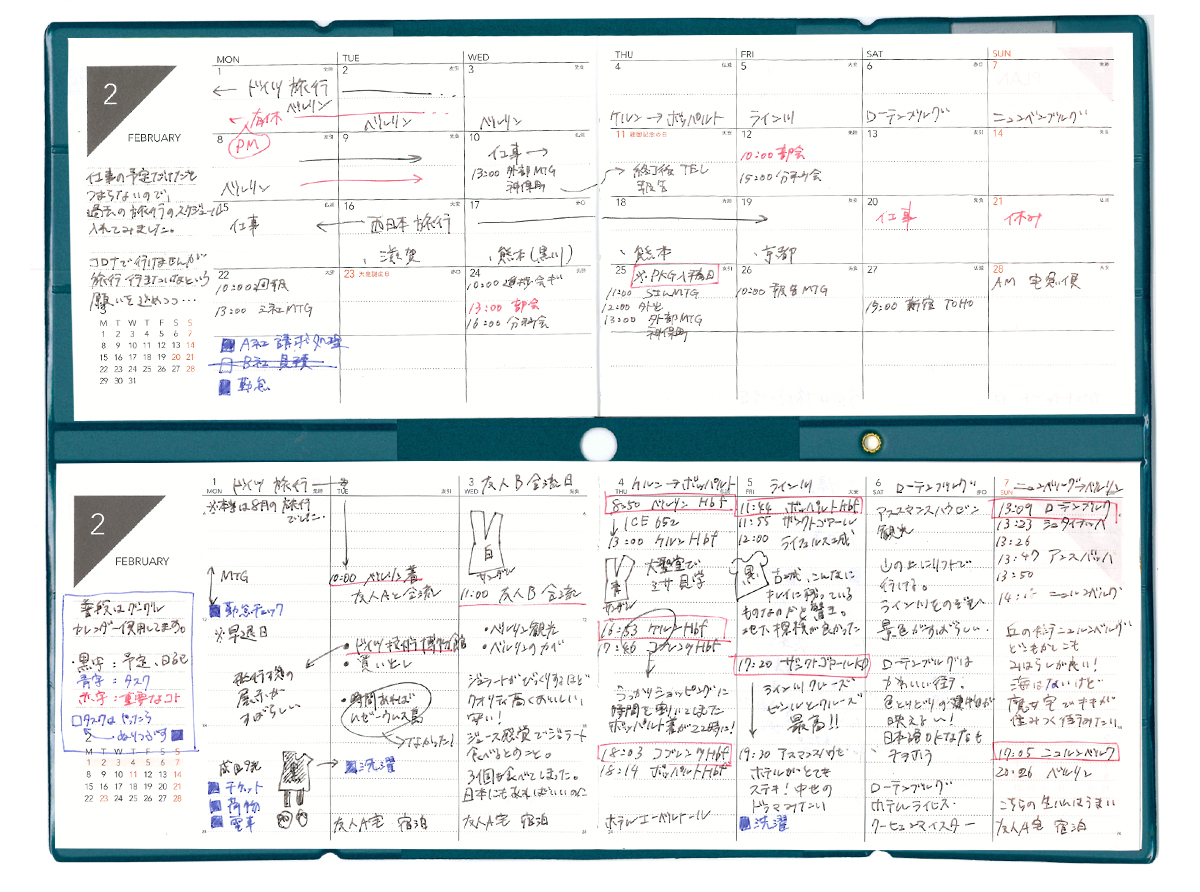 2
FEBRUARY
仕事の予定だけだと
つまらないので、
過去の旅行のスケジュール
入れてみました。
コロナで行けませんが
旅行行きたいなという
願いを込めつつ…
3
M T W T F S S
1 2 3 4 5 6 7
8 9 10 11 12 13 14
15 16 17 18 19 20 21
22 23 24 25 26 27 28
29 30 31
MON TUE WED THU FRI SAT SUN
1 先勝 2 友引 3 先負 4 仏滅 5 大安 6 赤口 7 先勝
← ドイツ 旅行
ベルリン
ケルン→ボッパルト
ライン川
ローテンブルグ
ニュルンベルグ
← 有休
ベルリン
ベルリン
8 友引 9 先負 10 仏滅 11 建国記念の日 大安 12 13 14
PM
ベルリン
仕事→
13:00 外部MTG
神保町
終了後 TEL
報告
10:00 部会
15:00 分科会
15 仏滅 16 大安 17 赤口 18 19 20 21
仕事
← 西日本 旅行
、滋賀
、熊本(黒川)
、熊本
、京都
仕事
休み
22 大安 23 天皇誕生日 赤口 24 25 26 27 28
10:00 週報
13:00 三社MTG
13:00 部会
16:00 分科会
11:00 SさんMTG
12:00 外出
13:00 外部MTG
神保町
10:00 報告MTG
15:00 新宿 TOHO
AM 宅急便
A社 請求処理
B社 見積
勤怠
2
FEBRUARY
普段はグーグル
カレンダー使用してます。
・黒字:予定、日記
青字:タスク
赤字:重要なコト
□タスクはやったら
→ぬりつぶす
2
M T W T F S S
1 2 3 4 5 6 7
8 9 10 11 12 13 14
15 16 17 18 19 20 21
22 23 24 25 26 27 28
1 MON
ドイツ旅行→
※本当は8月の旅行
でした…
MTG
勤怠チェック
※早退日
展示が
すばらしい
チケット
荷物
電車
TUE
10:00 ベルリン着
友人Aと合流
・ドイツ技術博物館
・買い出し
・時間あれば
ムゼーウムス島
なかった!
洗濯
友人A宅 宿泊
3 WED
友人B合流日
白
サンダル
11:00 友人B合流
・ベルリン観光
・ベルリンのカベ
ジェラートがびっくりするほど
クオリティ高くおいしい、
安い!
食べるとのこと。
3個も食べてしまった。
日本にもあればいいのに
友人A宅 宿泊
4 THU
ケルン→ボッパルト
8:50 ベルリン Hbf
↓ICE 652
13:00 ケルン Hbf
大聖堂で
ミサ見学
青
サンダル
16:53 ケルン Hbf
17:46 コブレンツ Hbf
うっかりショッピングに
時間を割いてしまい
ボッパルト着が22時に!
18:03 コブレンツ Hbf
18:14 ボッパルト Hbf
5 FRI
ライン川
11:44 ボッパルト Hbf
11:55 ザンクトゴアール
12:00 ラインフェルス城
黒
古城、こんなに
キレイに残っている
ものなのかと驚き。
地下探検が良かった
17:20 ザンクトゴアール
ラインクルーズ
ビールとクルーズ
最高!!
ホテルがとても
ステキ!中世の
ドラマみたい
洗濯
6 SAT
ローテンブルグ
観光
山の上にリフトで
行ける。
景色がすばらしい.
ローテンブルグは
かわいい街.
ローテンブルグ
7 SUN
ニュルンベルグ→ベルリン
13:09 ローテンブルク
13:23 シュタイナッハ
13:26
13:47 アンスバッハ
13:50
ニュルンベルグ
丘のポテニュルンベルグ
どもかしこも
みはらしが良い!
海はないけど
魔女宅でキキが
住みつく街みたい.
19:05 ニュルンベルク
20:26 ベルリン
こちらの生ハムはうまい
友人A宅 宿泊